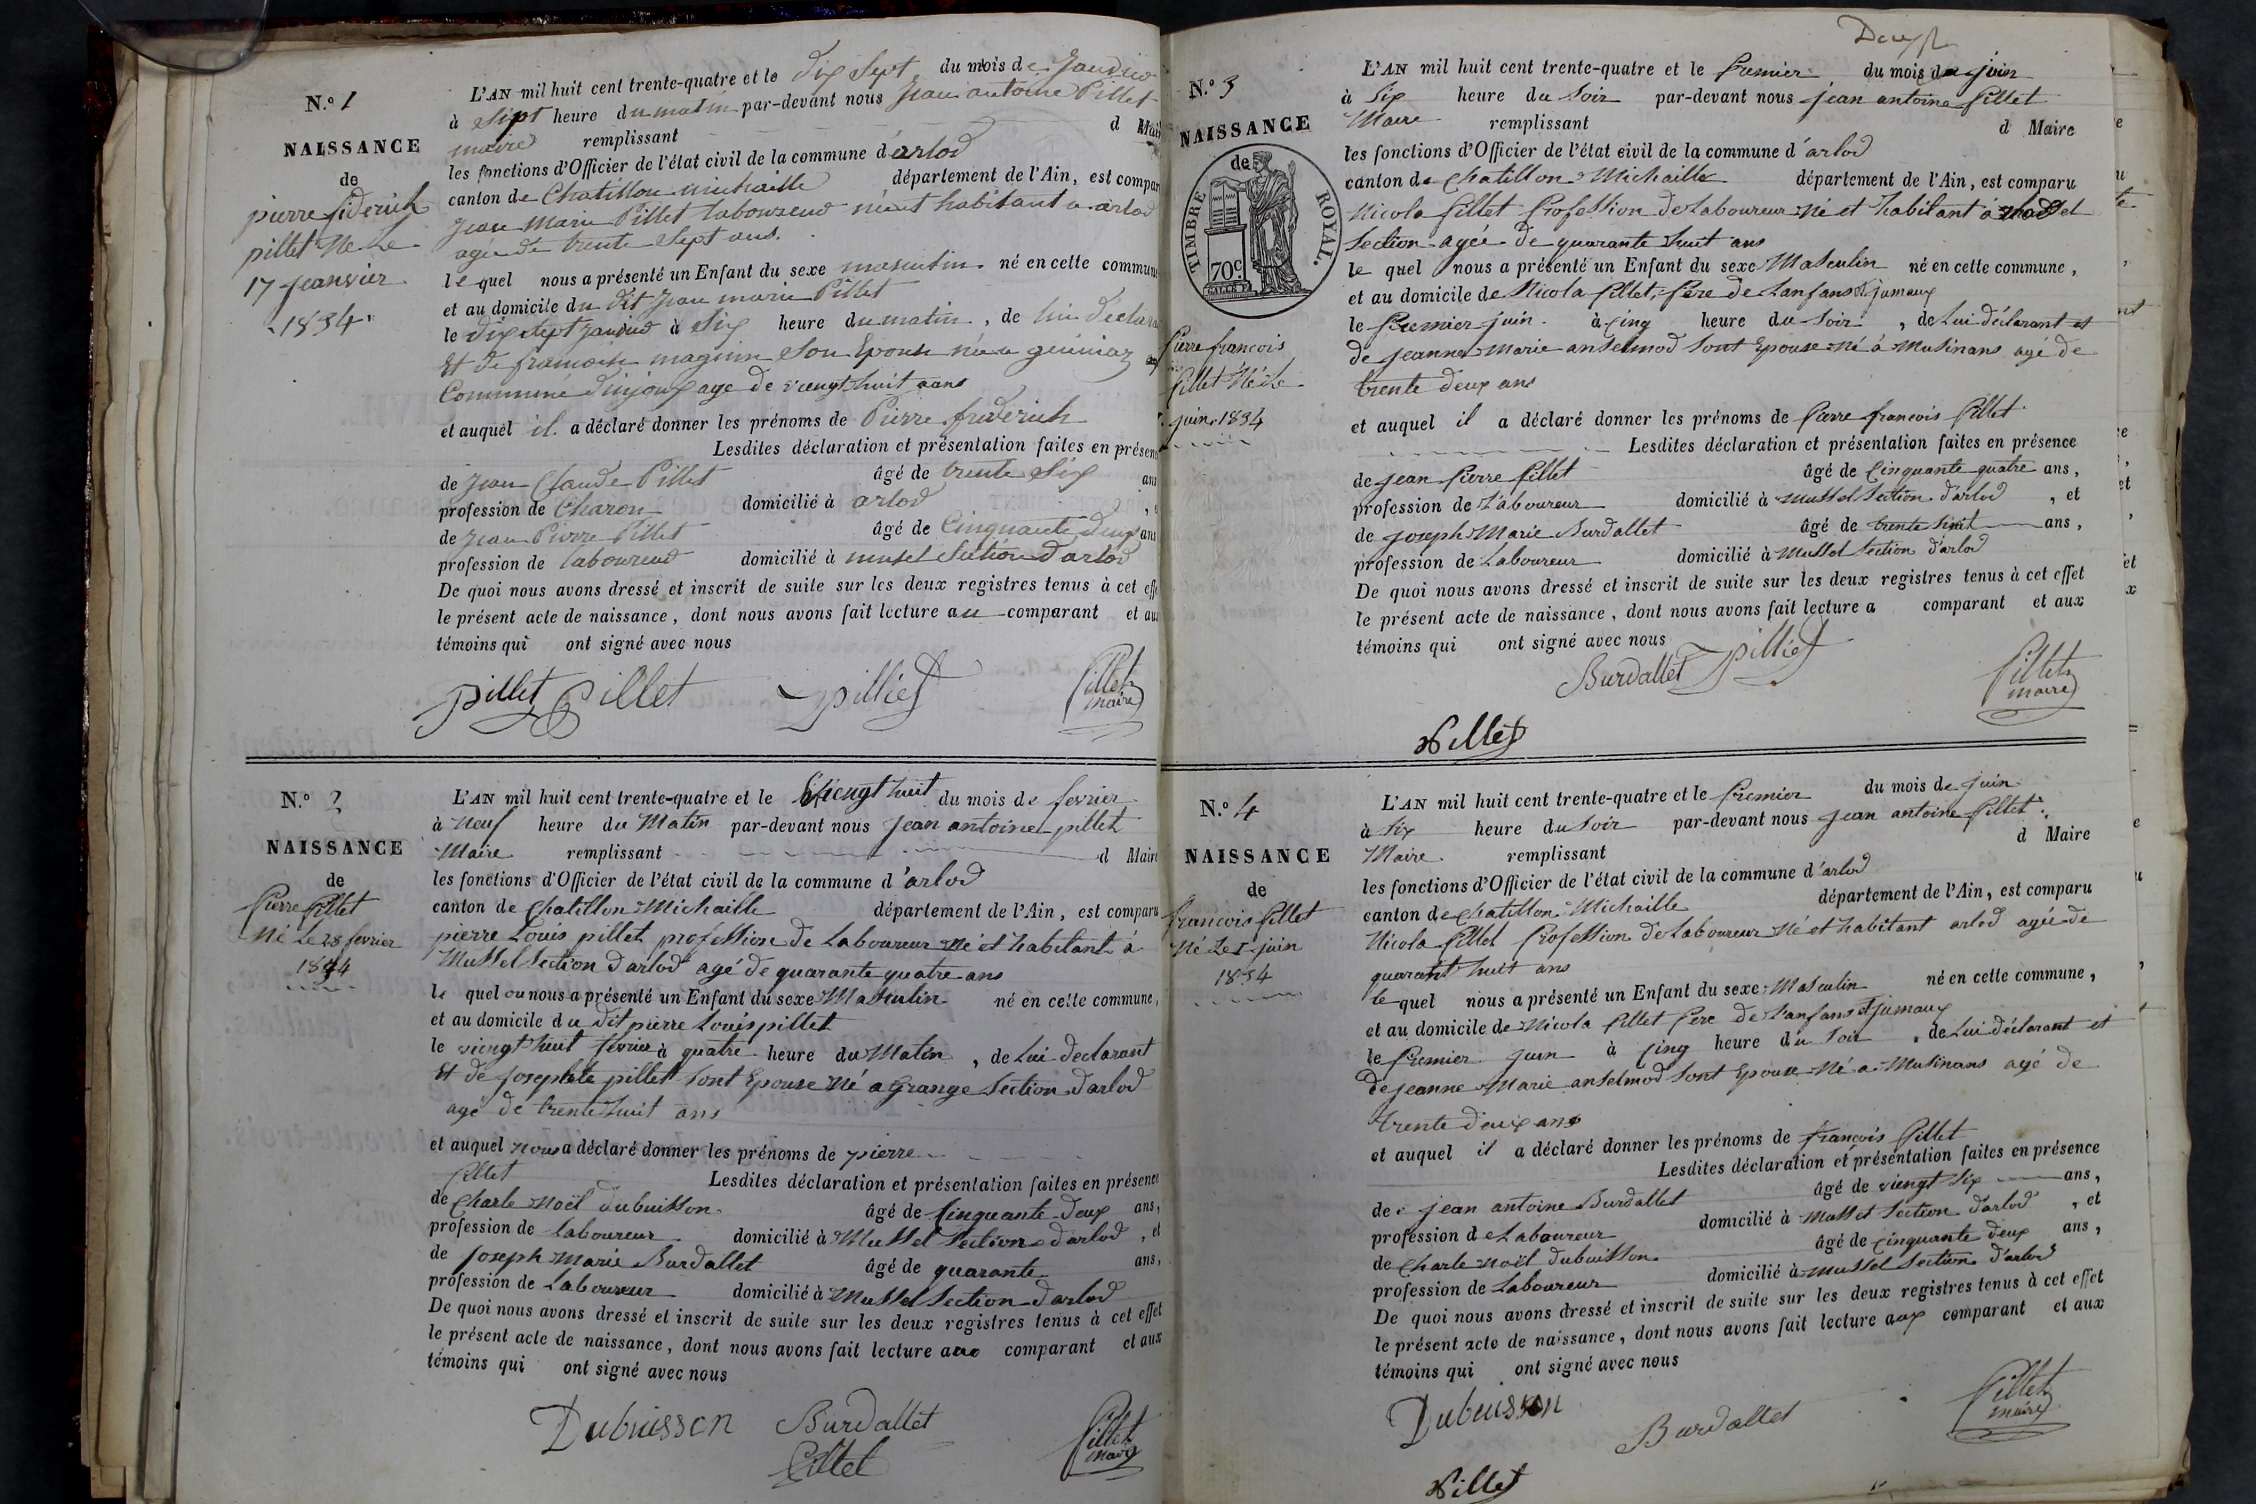 N.o 1
NAISSANCE
de
pierre fiderich
pillet Né Le
17 jeanvier
1834
L'AN mil huit cent trente-quatre et le dix sept du mois de janvier
à sept heure du matin par-devant nous jean antoine Pillet
maire remplissant d Mair
les fonctions d'Officier de l'état civil de la commune d'arlod
canton de Chatillon michaille département de l'Ain, est compar
jean Marie Pillet laboureur né et habitant a arlod
agé de trente sept ans.
le quel nous a présenté un Enfant du sexe masculin né en cette commune
et au domicile du dit jean marie Pillet
le dix sept janvier à six heure du matin, de lui déclara
Et de francoise magnin son Epouse née a
Commune d'injoux age de viengt huit ans
et auquel il a déclaré donner les prénoms de Pierre friderich
Lesdites déclaration et présentation faites en présen
de jean Claude Pillet âgé de trente six ans
profession de Charon domicilié à arlod
de jean Pierre Pillet âgé de Cinquante deux ans
profession de laboureur domicilié à musel Section d'arlod
De quoi nous avons dressé et inscrit de suite sur les deux registres tenus à cet eff
le présent acte de naissance, dont nous avons fait lecture au comparant et au
témoins qui ont signé avec nous
pillet Pillet Pilliet Pillet
maire
N.o 2
NAISSANCE
de
Pierre Pillet
Né Le 28 fevrier
1834
L'AN mil huit cent trente-quatre et le viengt huit du mois de fevrier
à Neuf heure du Matin par-devant nous jean antoine pillet
Maire remplissant d Maire
les fonctions d'Officier de l'état civil de la commune d'arlod
canton de Chatillon Michaille département de l'Ain, est comparu
pierre Louis pillet profession de Laboureur Né et habitant à
Mussel Section d'arlod agé de quarante quatre ans
le quel nous a présenté un Enfant du sexe Masculin né en cette commune,
et au domicile du dit pierre Louis pillet
le viengt huit fevrier à quatre heure du Matin, de Lui declarant
Et de josephte pillet sont Epouse Né a Grange Section d'arlod
agé de trente huit ans
et auquel nous a déclaré donner les prénoms de pierre
Pillet Lesdites déclaration et présentation faites en présence
de Charle Noël dubuisson âgé de Cinquante deux ans,
profession de Laboureur domicilié à Mussel Section d'arlod, et
de Joseph Marie Burdallet âgé de quarante ans,
profession de Laboureur domicilié à Mussel Section d'arlod
De quoi nous avons dressé et inscrit de suite sur les deux registres tenus à cet effet
le présent acte de naissance, dont nous avons fait lecture aux comparant et aux
témoins qui ont signé avec nous
Dubuisson Burdallet Pillet
Pillet maire
Deux
N.o 3
NAISSANCE
de
TIMBRE ROYAL.
70c
Pierre francois
Pillet Né Le
1 juin 1834
L'AN mil huit cent trente-quatre et le Premier du mois de juin
à Six heure du Soir par-devant nous jean antoine Pillet
Maire remplissant d Maire
les fonctions d'Officier de l'état civil de la commune d'arlod
canton de Chatillon Michaille département de l'Ain, est comparu
Nicola Pillet Profession de Laboureur Né et habitant à Mussel
Section agée de quarante huit ans
le quel nous a présenté un Enfant du sexe Masculin né en cette commune,
et au domicile de Nicola Pillet, Père de Lanfans et jumaux
le Premier juin à Cinq heure du Soir, de Lui déclarant et
de jeanne Marie anselmod sont Epouse Né à Musinans agé de
trente deux ans
et auquel il a déclaré donner les prénoms de Pierre francois Pillet
Lesdites déclaration et présentation faites en présence
de jean Pierre Pillet âgé de Cinquante quatre ans,
profession de Laboureur domicilié à Mussel Section d'arlod, et
de joseph Marie Burdallet âgé de trente huit ans,
profession de Laboureur domicilié à Mussel Section d'arlod
De quoi nous avons dressé et inscrit de suite sur les deux registres tenus à cet effet
le présent acte de naissance, dont nous avons fait lecture a comparant et aux
témoins qui ont signé avec nous
Burdallet Pilliet Pillet
maire
Pillet
N.o 4
NAISSANCE
de
francois Pillet
Né Le 1 juin
1834
L'AN mil huit cent trente-quatre et le Premier du mois de juin
à Six heure du Soir par-devant nous jean antoine Pillet
Maire remplissant d Maire
les fonctions d'Officier de l'état civil de la commune d'arlod
canton de Chatillon Michaille département de l'Ain, est comparu
Nicola Pillet Profession de Laboureur Né et habitant arlod agée de
quarant huit ans
le quel nous a présenté un Enfant du sexe Masculin né en cette commune,
et au domicile de Nicola Pillet Père de L'anfans et jumaux
le Premier juin à Cinq heure du Soir, de Lui déclarant et
de jeanne Marie anselmod sont Epouse Né a Musinans agé de
trente deux ans
et auquel il a déclaré donner les prénoms de françois Pillet
Lesdites déclaration et présentation faites en présence
de jean antoine Burdallet âgé de viengt six ans,
profession de Laboureur domicilié à Mussel Section d'arlod, et
de Charle Noël dubuisson âgé de Cinquante deux ans,
profession de Laboureur domicilié à Mussel Section d'arlod
De quoi nous avons dressé et inscrit de suite sur les deux registres tenus à cet effet
le présent acte de naissance, dont nous avons fait lecture aux comparant et aux
témoins qui ont signé avec nous
Dubuisson Burdallet Pillet
maire
Pillet